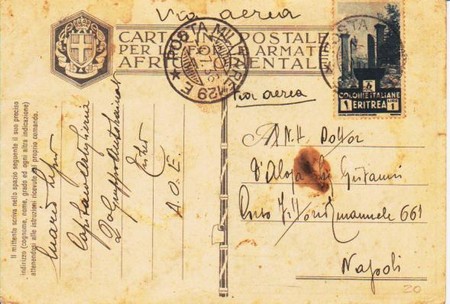 Via aerea
CARTOLINA POSTALE
PER LE FORZE ARMATE
AFRICA ORIENTALE
POSTA MILITARE
129 E
COLONIE ITALIANE
1 ERITREA 1
Via aerea
Dottor
D'Aloja Giovanni
Corso Vittorio Emanuele 661
Napoli
20
Mario
Capitano Artiglieria
A.O.E.
Il mittente scriva nello spazio seguente il suo preciso
indirizzo (cognome, nome, grado ed ogni altra indicazione)
attenendosi alle istruzioni ricevute dal proprio comando.